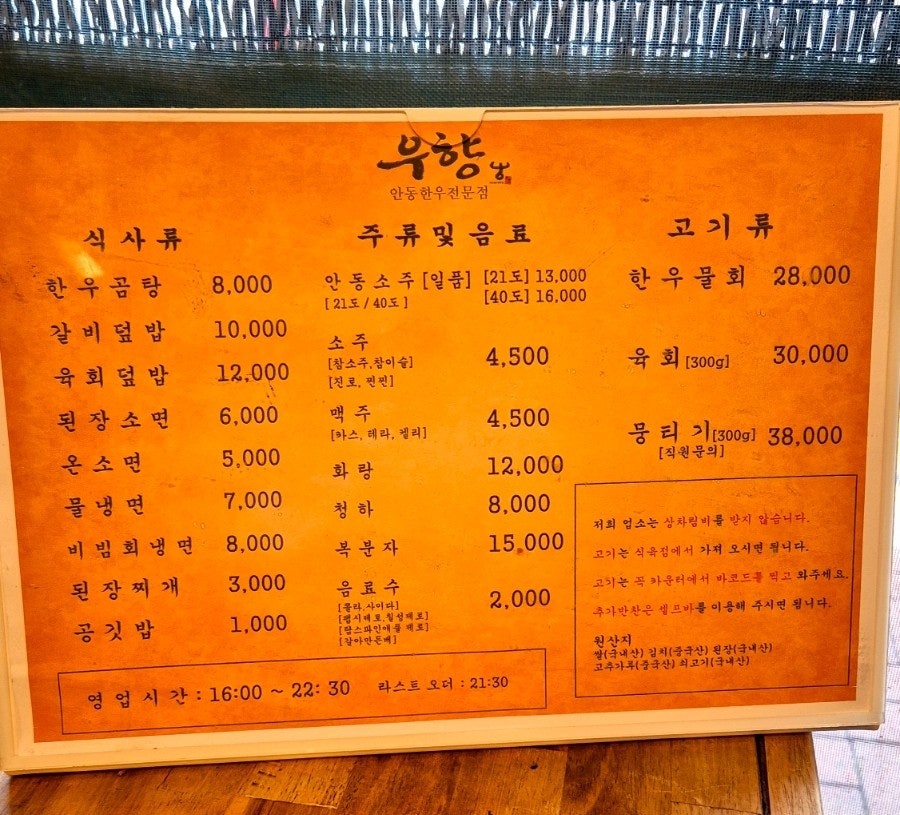 우향
안동한우전문점
식사류
한우곰탕 8,000
갈비덮밥 10,000
육회덮밥 12,000
된장소면 6,000
온소면 5,000
물냉면 7,000
비빔회냉면 8,000
된장찌개 3,000
공깃밥 1,000
주류및음료
안동소주 [일품] [21도] 13,000
[ 21도 / 40도 ] [40도] 16,000
소주 4,500
[참소주,참이슬]
[진로, 찐찐]
맥주 4,500
[카스, 테라, 켈리]
화랑 12,000
청하 8,000
복분자 15,000
음료수 2,000
[콜라,사이다]
[펩시제로,칠성제로]
[탐스파인애플 제로]
[갈아만든배]
고기류
한우물회 28,000
육회 [300g] 30,000
뭉티기 [300g] 38,000
[직원문의]
저희 업소는 상차림비를 받지 않습니다.
고기는 식육점에서 가져 오시면 됩니다.
고기는 꼭 카운터에서 바코드를 찍고 와주세요.
추가반찬은 셀프바를 이용해 주시면 됩니다.
원산지
쌀(국내산) 김치(중국산) 된장(국내산)
고추가루(중국산) 쇠고기(국내산)
영업시간 : 16:00 ~ 22: 30 라스트 오더 : 21:30